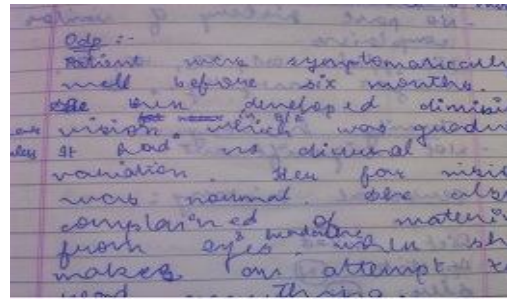 Odp :-
Patient was symptomatically
well before six months.
She then developed dimini
vision which was gradu
It had no diurnal
variation. Her far visi
was normal. She als
complained of wateri
from eyes when sh
makes an attempt t
read